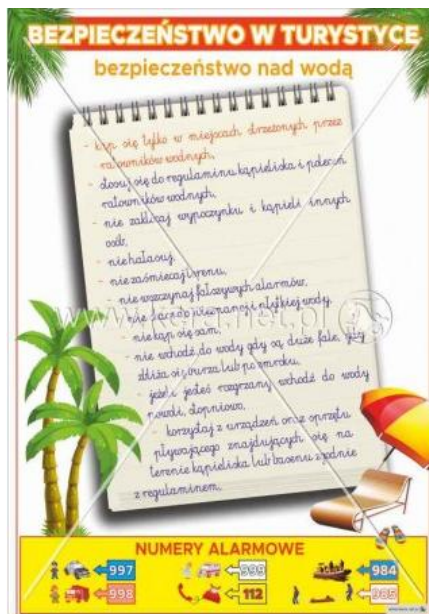 BEZPIECZEŃSTWO W TURYSTYCE
bezpieczeństwo nad wodą
- kąp się tylko w miejscach strzeżonych przez
ratowników wodnych,
- stosuj się do regulaminu kąpieliska i poleceń
ratowników wodnych,
- nie zakłócaj wypoczynku i kąpieli innych
osób,
- nie hałasuj,
- nie zaśmiecaj terenu,
- nie wszczynaj fałszywych alarmów,
- nie skacz do nieznanej i płytkiej wody,
- nie kąp się sam,
- nie wchodź do wody gdy są duże fale, gdy
zbliża się burza lub po zmroku,
- jeżeli jesteś rozgrzany wchodź do wody
powoli, stopniowo,
- korzystaj z urządzeń oraz sprzętu
pływającego znajdujących się na
terenie kąpieliska lub basenu zgodnie
z regulaminem.
NUMERY ALARMOWE
997 999 984
998 112 985